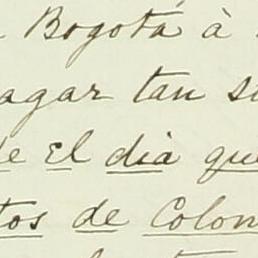 Bogotá à
agar tan s
de el dia que
tos de Colon